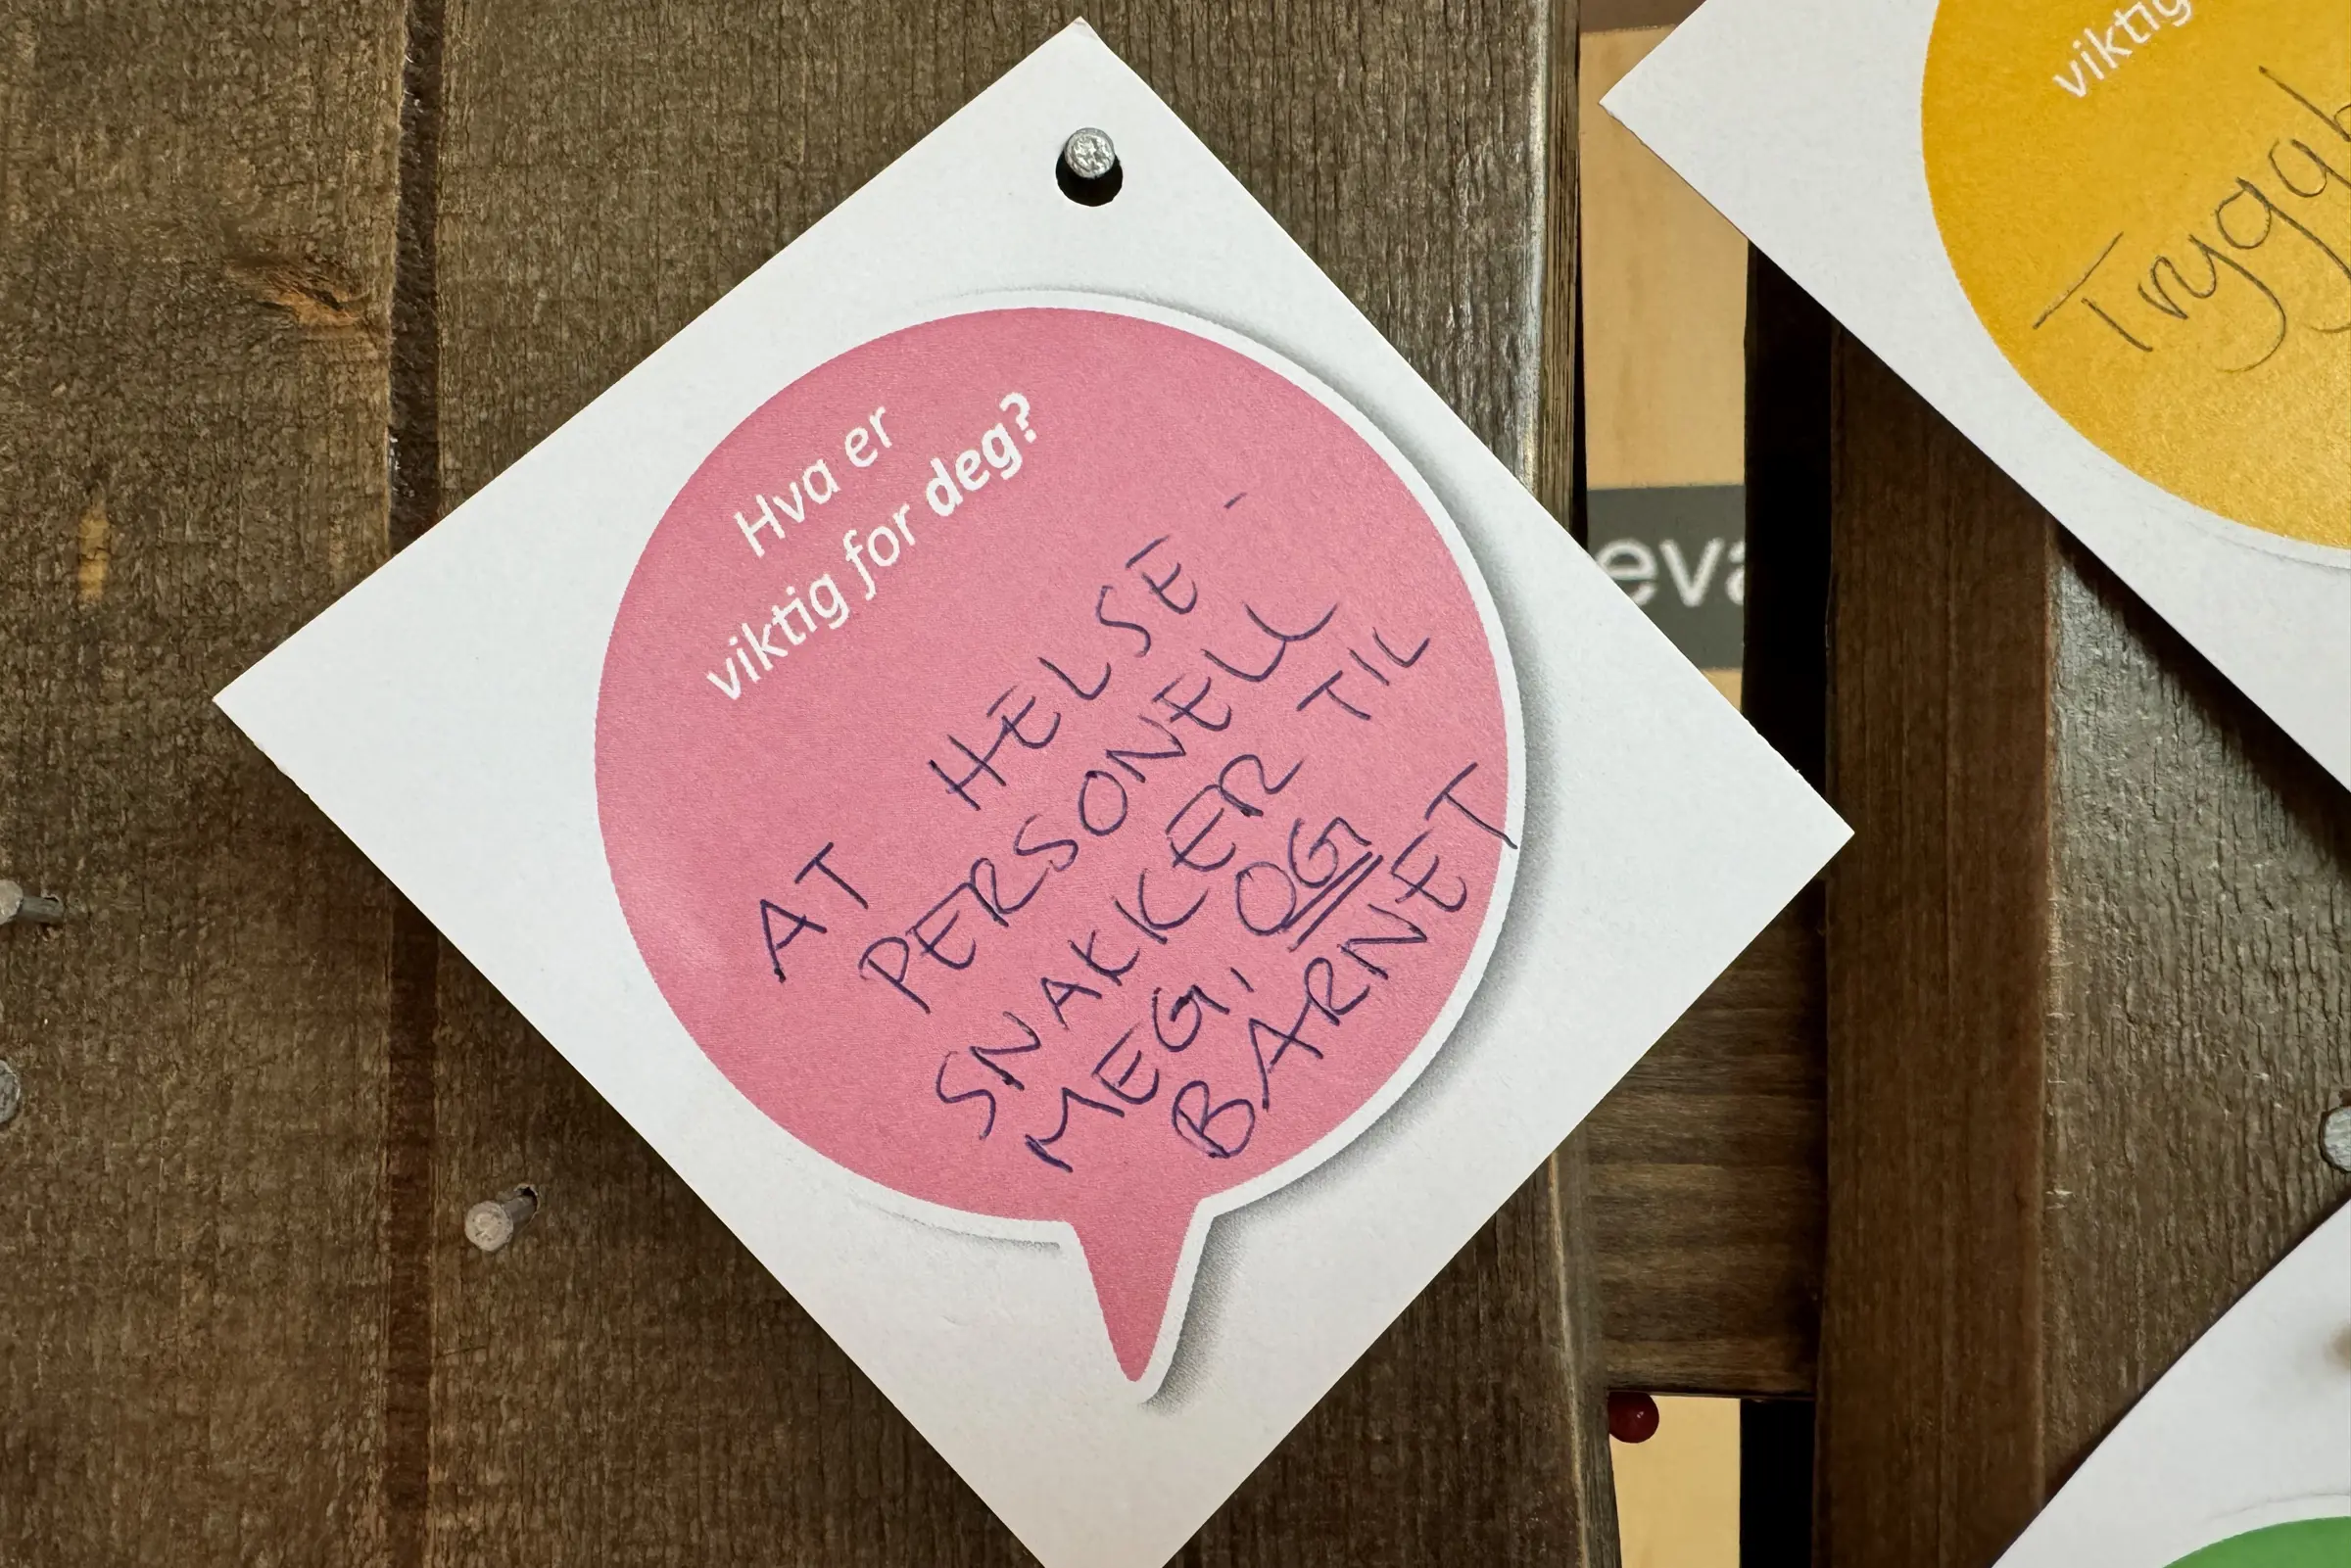 Hva er
viktig for deg?
AT HELSE-
PERSONELL
SNAKKER TIL
MEG, OG
BARNET
viktig